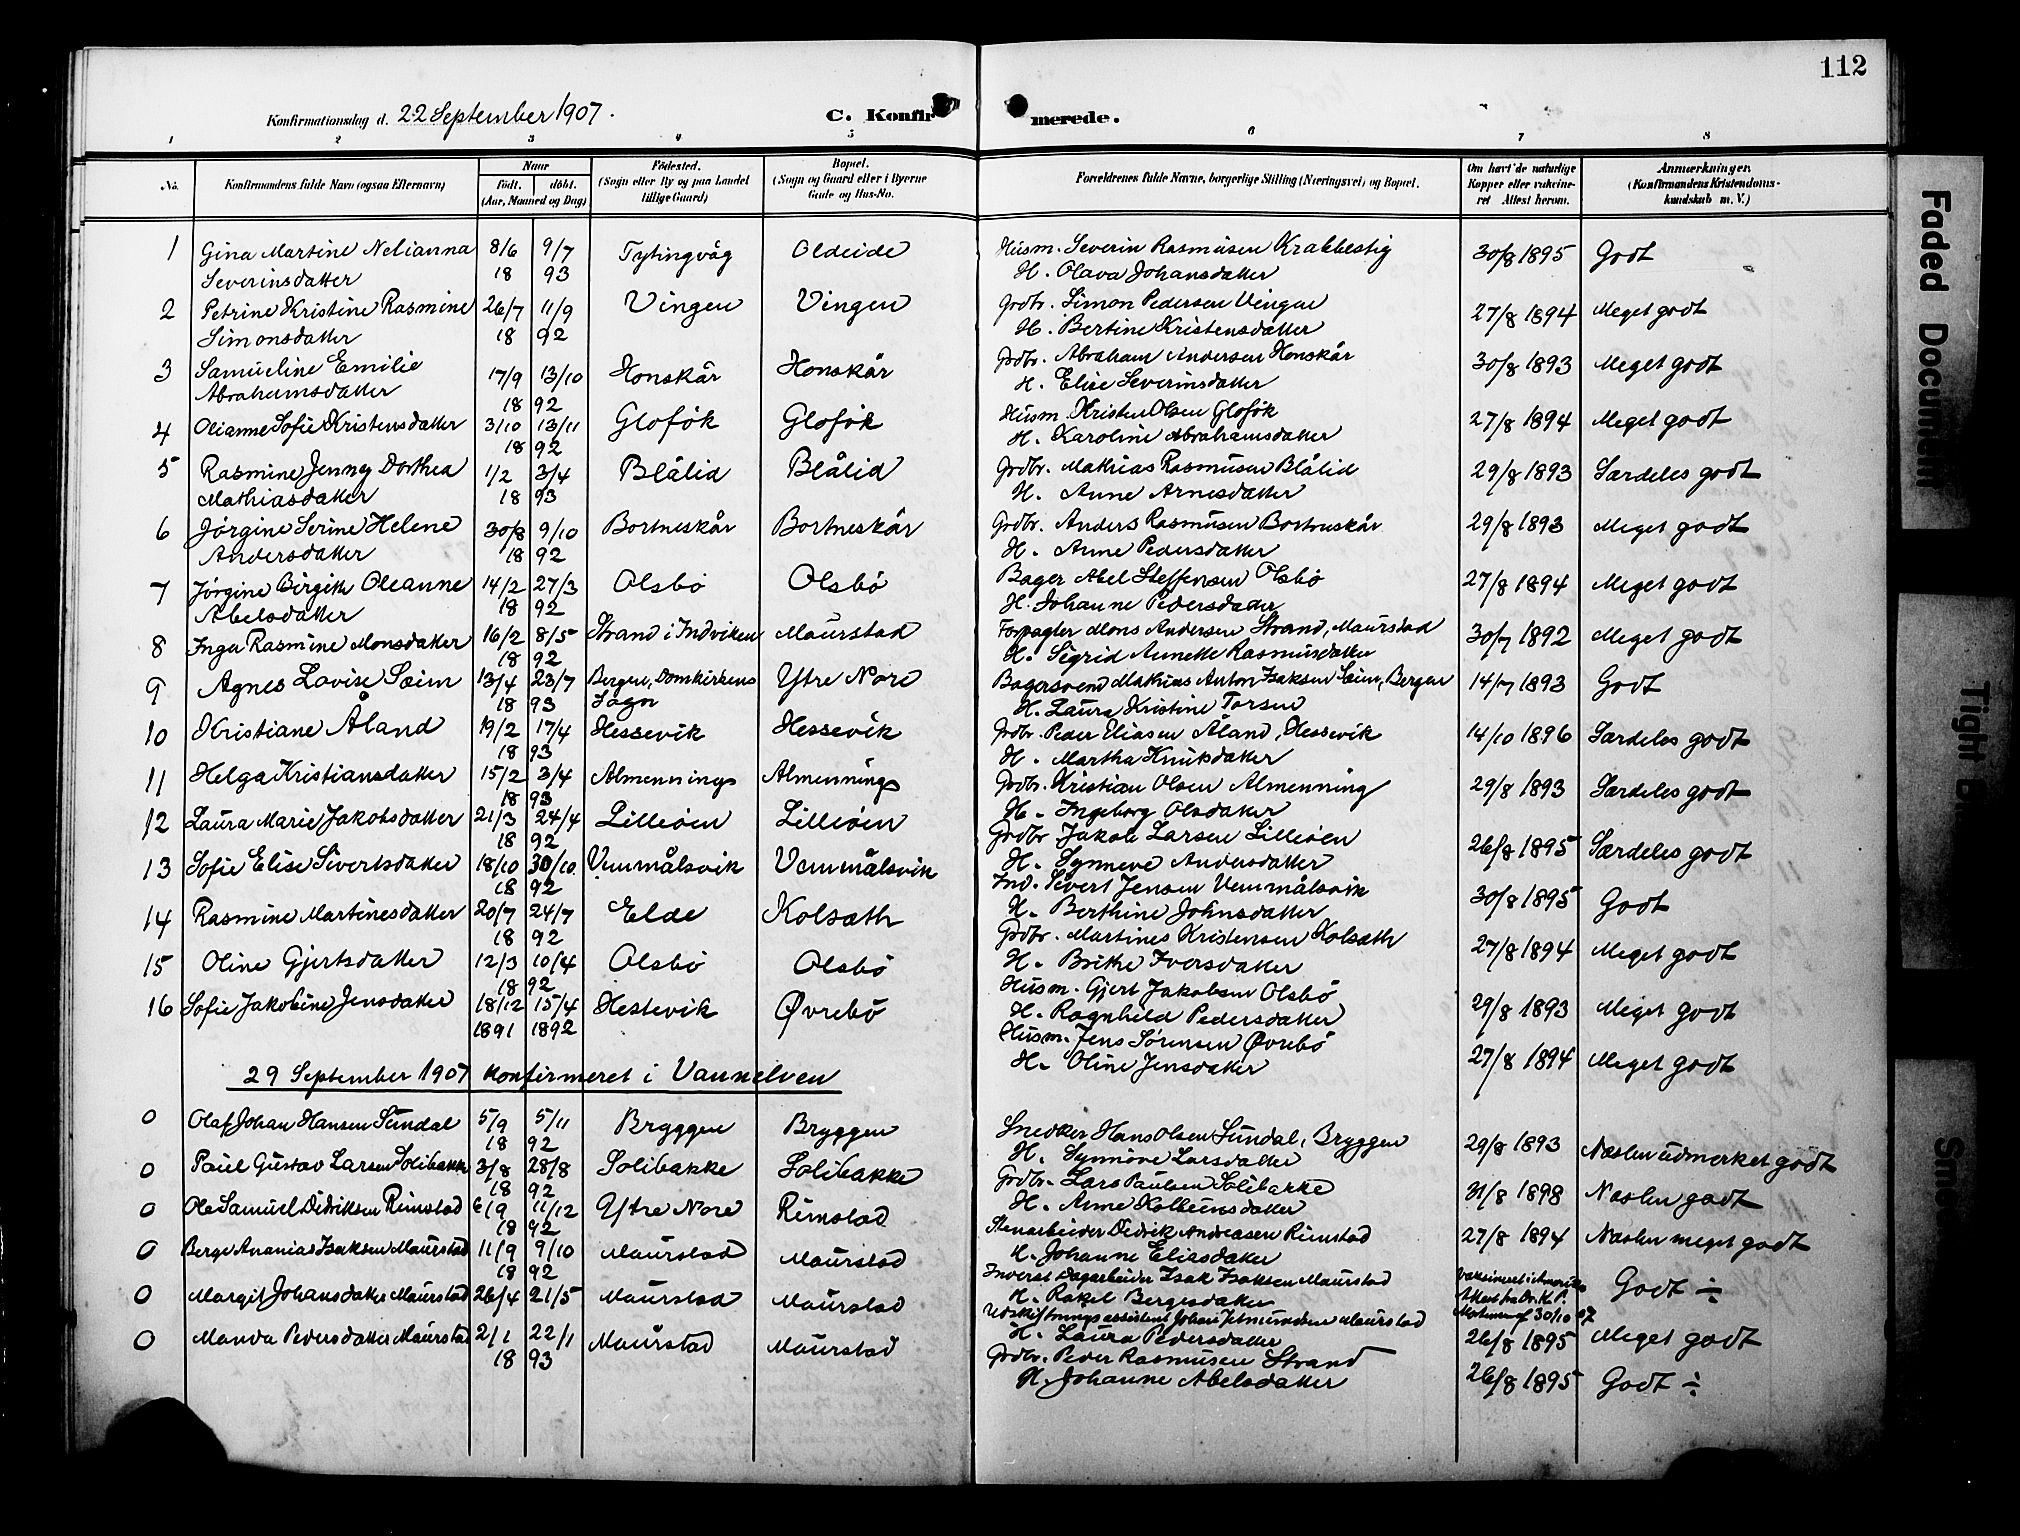 112
Konfirmationsdag d. 22 September 1907.
C. Konfirmerede.
1 2 3 4 5 6 7 8
No. Konfirmandens fulde Navn (ogsaa Efternavn) Naar født. døbt. (Aar, Maaned og Dag) Fødested. (Sogn eller By og paa Landet tillige Gaard) Bopæl. (Sogn og Gaard eller i Byerne Gade og Hus-No. Forældrenes fulde Navne, borgerlige Stilling (Næringsvei) og Bopæl. Om havt de naturlige Kopper eller vakcineret Attest herom. Anmærkninger. (Konfirmandens Kristendomskundskab m. V.)
1 Gina Martine Nelianna 8/6 9/7 Tytingvåg Oldeide Husm. Severin Rasmusen Krabbestig 30/8 1895 Godt
Severinsdatter 18 93 H. Olava Johansdatter
2 Petrine Kristine Rasmine 26/7 11/9 Vingen Vingen Grdbr. Simon Pedersen Vingen 27/8 1894 Meget godt
Simonsdatter 18 92 H. Bertine Kristensdatter
3 Samueline Emilie 17/9 13/10 Honskår Honskår Grdbr. Abraham Andersen Honskår 30/8 1893 Meget godt
Abrahamsdatter 18 92 H. Elise Severinsdatter
4 Olianne Sofie Kristensdatter 3/10 13/11 Gloføk Gloføk Husm. Kristen Olsen Gloføk 27/8 1894 Meget godt
18 92 H. Karoline Abrahamsdatter
5 Rasmine Jenny Dorthea 1/2 3/4 Blålid Blålid Grdbr. Mathias Rasmusen Blålid 29/8 1893 Særdeles godt
Mathiasdatter 18 93 H. Anne Arnesdatter
6 Jørgine Serine Helene 30/8 9/10 Bortneskår Bortneskår Grdbr. Anders Rasmusen Bortneskår 29/8 1893 Meget godt
Andersdatter 18 92 H. Anne Pedersdatter
7 Jørgine Birgith Oleanne 14/2 27/3 Olsbø Olsbø Bager Abel Steffensen Olsbø 27/8 1894 Meget godt
Abelsdatter 18 92 H. Johanne Pedersdatter
8 Inga Rasmine Monsdatter 16/2 8/5 Strand i Indviken Maurstad Forpagter Mons Andersen Strand, Maurstad 30/7 1892 Meget godt
18 92 H. Sigrid Annette Rasmusdatter
9 Agnes Lovise Sæim 13/4 23/7 Bergen, Domkirkens Ytre Nore Bagersvend Mathias Anton Isaksen Sæim, Bergen 14/7 1893 Godt
18 93 Sogn H. Laura Kristine Torsen
10 Kristiane Åland 19/2 17/4 Hessevik Hessevik Grdbr. Peder Eliasen Åland, Hessevik 14/10 1896 Særdeles godt
18 93 H. Martha Knutsdatter
11 Helga Kristiansdatter 15/2 3/4 Almennings Almennings Grdbr. Kristian Olsen Almenning 29/8 1893 Særdeles godt
18 93 H. Ingeborg Olsdatter
12 Laura Marie Jakobsdatter 21/3 24/4 Lilleøen Lilleøen Grdbr Jakob Larsen Lilleøen 26/8 1895 Særdeles godt
18 92 H. Synneve Andersdatter
13 Sofie Elise Sivertsdatter 18/10 30/10 Vemmålsvik Vemmålsvik Ind. Sivert Jensen Vemmålsvik 30/8 1895 Godt
18 92 H. Berthine Johnsdatter
14 Rasmine Martinesdatter 20/7 24/7 Elde Kolsæth Grdbr. Martines Kristensen Kolsæth 27/8 1894 Meget godt
18 92 H. Brithe Iversdatter
15 Oline Gjertsdatter 12/3 10/4 Olsbø Olsbø Husm. Gjert Jakobsen Olsbø 29/8 1893 Meget godt
18 92 H. Ragnhild Pedersdatter
16 Sofie Jakobine Jensdatter 18/12 15/4 Hestevik Øvrebø Husm. Jens Sørensen Øvrebø 27/8 1894 Meget godt
1891 1892 H. Oline Jensdatter
29 September 1907 konfirmeret i Vannelven
0 Olaf Johan Hansen Sundal 5/9 5/11 Bryggen Bryggen Snedker Hans Olsen Sundal, Bryggen 29/8 1893 Næsten udmerket godt
18 92 H. Synnøve Larsdatter
0 Paul Gustav Larsen Solibakke 3/8 28/8 Solibakke Solibakke Grdbr. Lars Paulsen Solibakke 31/8 1898 Næsten godt
18 92 H. Anne Kolbeinsdatter
0 Ole Samuel Didriksen Rimstad 6/9 11/12 Ytre Nore Rimstad Stenarbeider Didrik Andreasen Rimstad 27/8 1894 Næsten meget godt
18 92 H. Johanne Eliasdatter
0 Berge Ananias Isaksen Maurstad 11/9 9/10 Maurstad Maurstad Inderst Dagarbeider Isak Isaksen Maurstad vaksineret i Amerika Attest fra Dr. K. P. 30/10 07 Godt ÷
18 92 H. Rakel Bergesdatter
0 Margit Johansdatter Maurstad 26/4 21/5 Maurstad Maurstad Udskiftningsassistent Johan Maurstad 26/8 1895 Meget godt
H. Laura Pedersdatter
0 Manda Pedersdatter Maurstad 2/1 22/1 Maurstad Maurstad Grdbr. Peder Rasmusen Strand 26/8 1895 Godt ÷
18 93 H. Johanne Abelsdatter
Faded Document
Tight